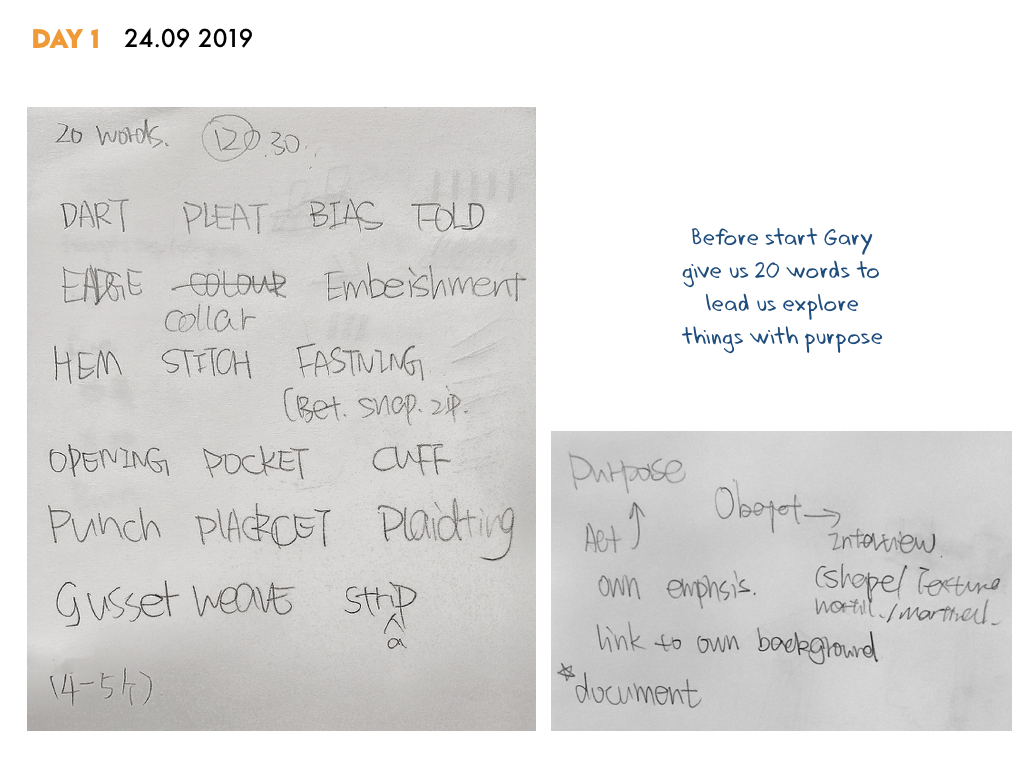 DAY 1 24.09 2019
20 words. 120.30..
DART PLEAT BIAS FOLD
colour Embeishment
collar
HEM STITCH FASTNING
snap. zip.
OPENING POCKET CUFF
Punch PLACKCET Plaidting
Gusset weave strip
a
(4-5个)
Before start Gary
give us 20 words to
lead us explore
things with purpose
Purpose
Act
own emphsis.
link to own background
document
(shape/ Texture